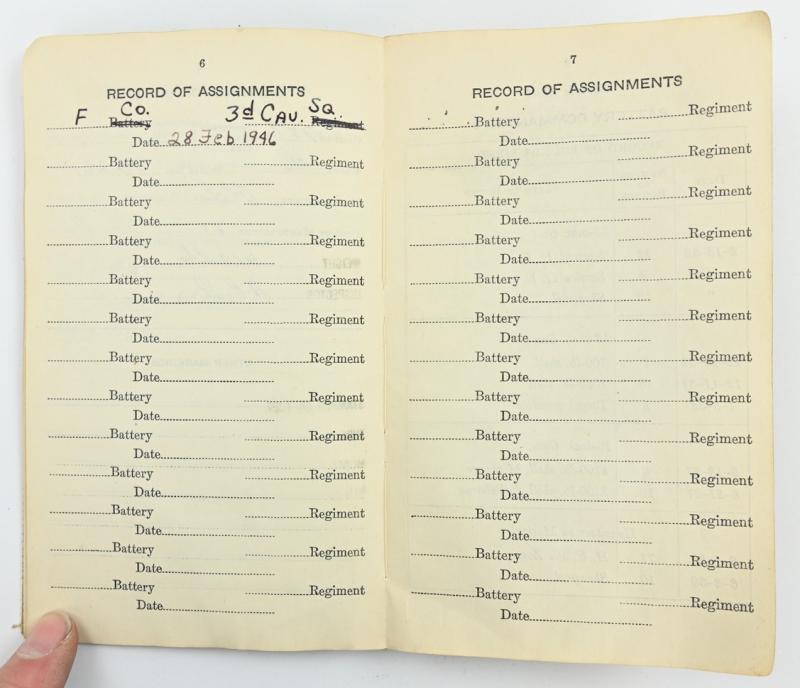 6
RECORD OF ASSIGNMENTS
F Co. Battery 3d CAV. Sq. Regiment
Date 28 Feb 1946
Battery Regiment
Date
Battery Regiment
Date
Battery Regiment
Date
Battery Regiment
Date
Battery Regiment
Date
Battery Regiment
Date
Battery Regiment
Date
Battery Regiment
Date
Battery Regiment
Date
Battery Regiment
Date
Battery Regiment
Date
Battery Regiment
Date
7
RECORD OF ASSIGNMENTS
Battery Regiment
Date
Battery Regiment
Date
Battery Regiment
Date
Battery Regiment
Date
Battery Regiment
Date
Battery Regiment
Date
Battery Regiment
Date
Battery Regiment
Date
Battery Regiment
Date
Battery Regiment
Date
Battery Regiment
Date
Battery Regiment
Date
Battery Regiment
Date